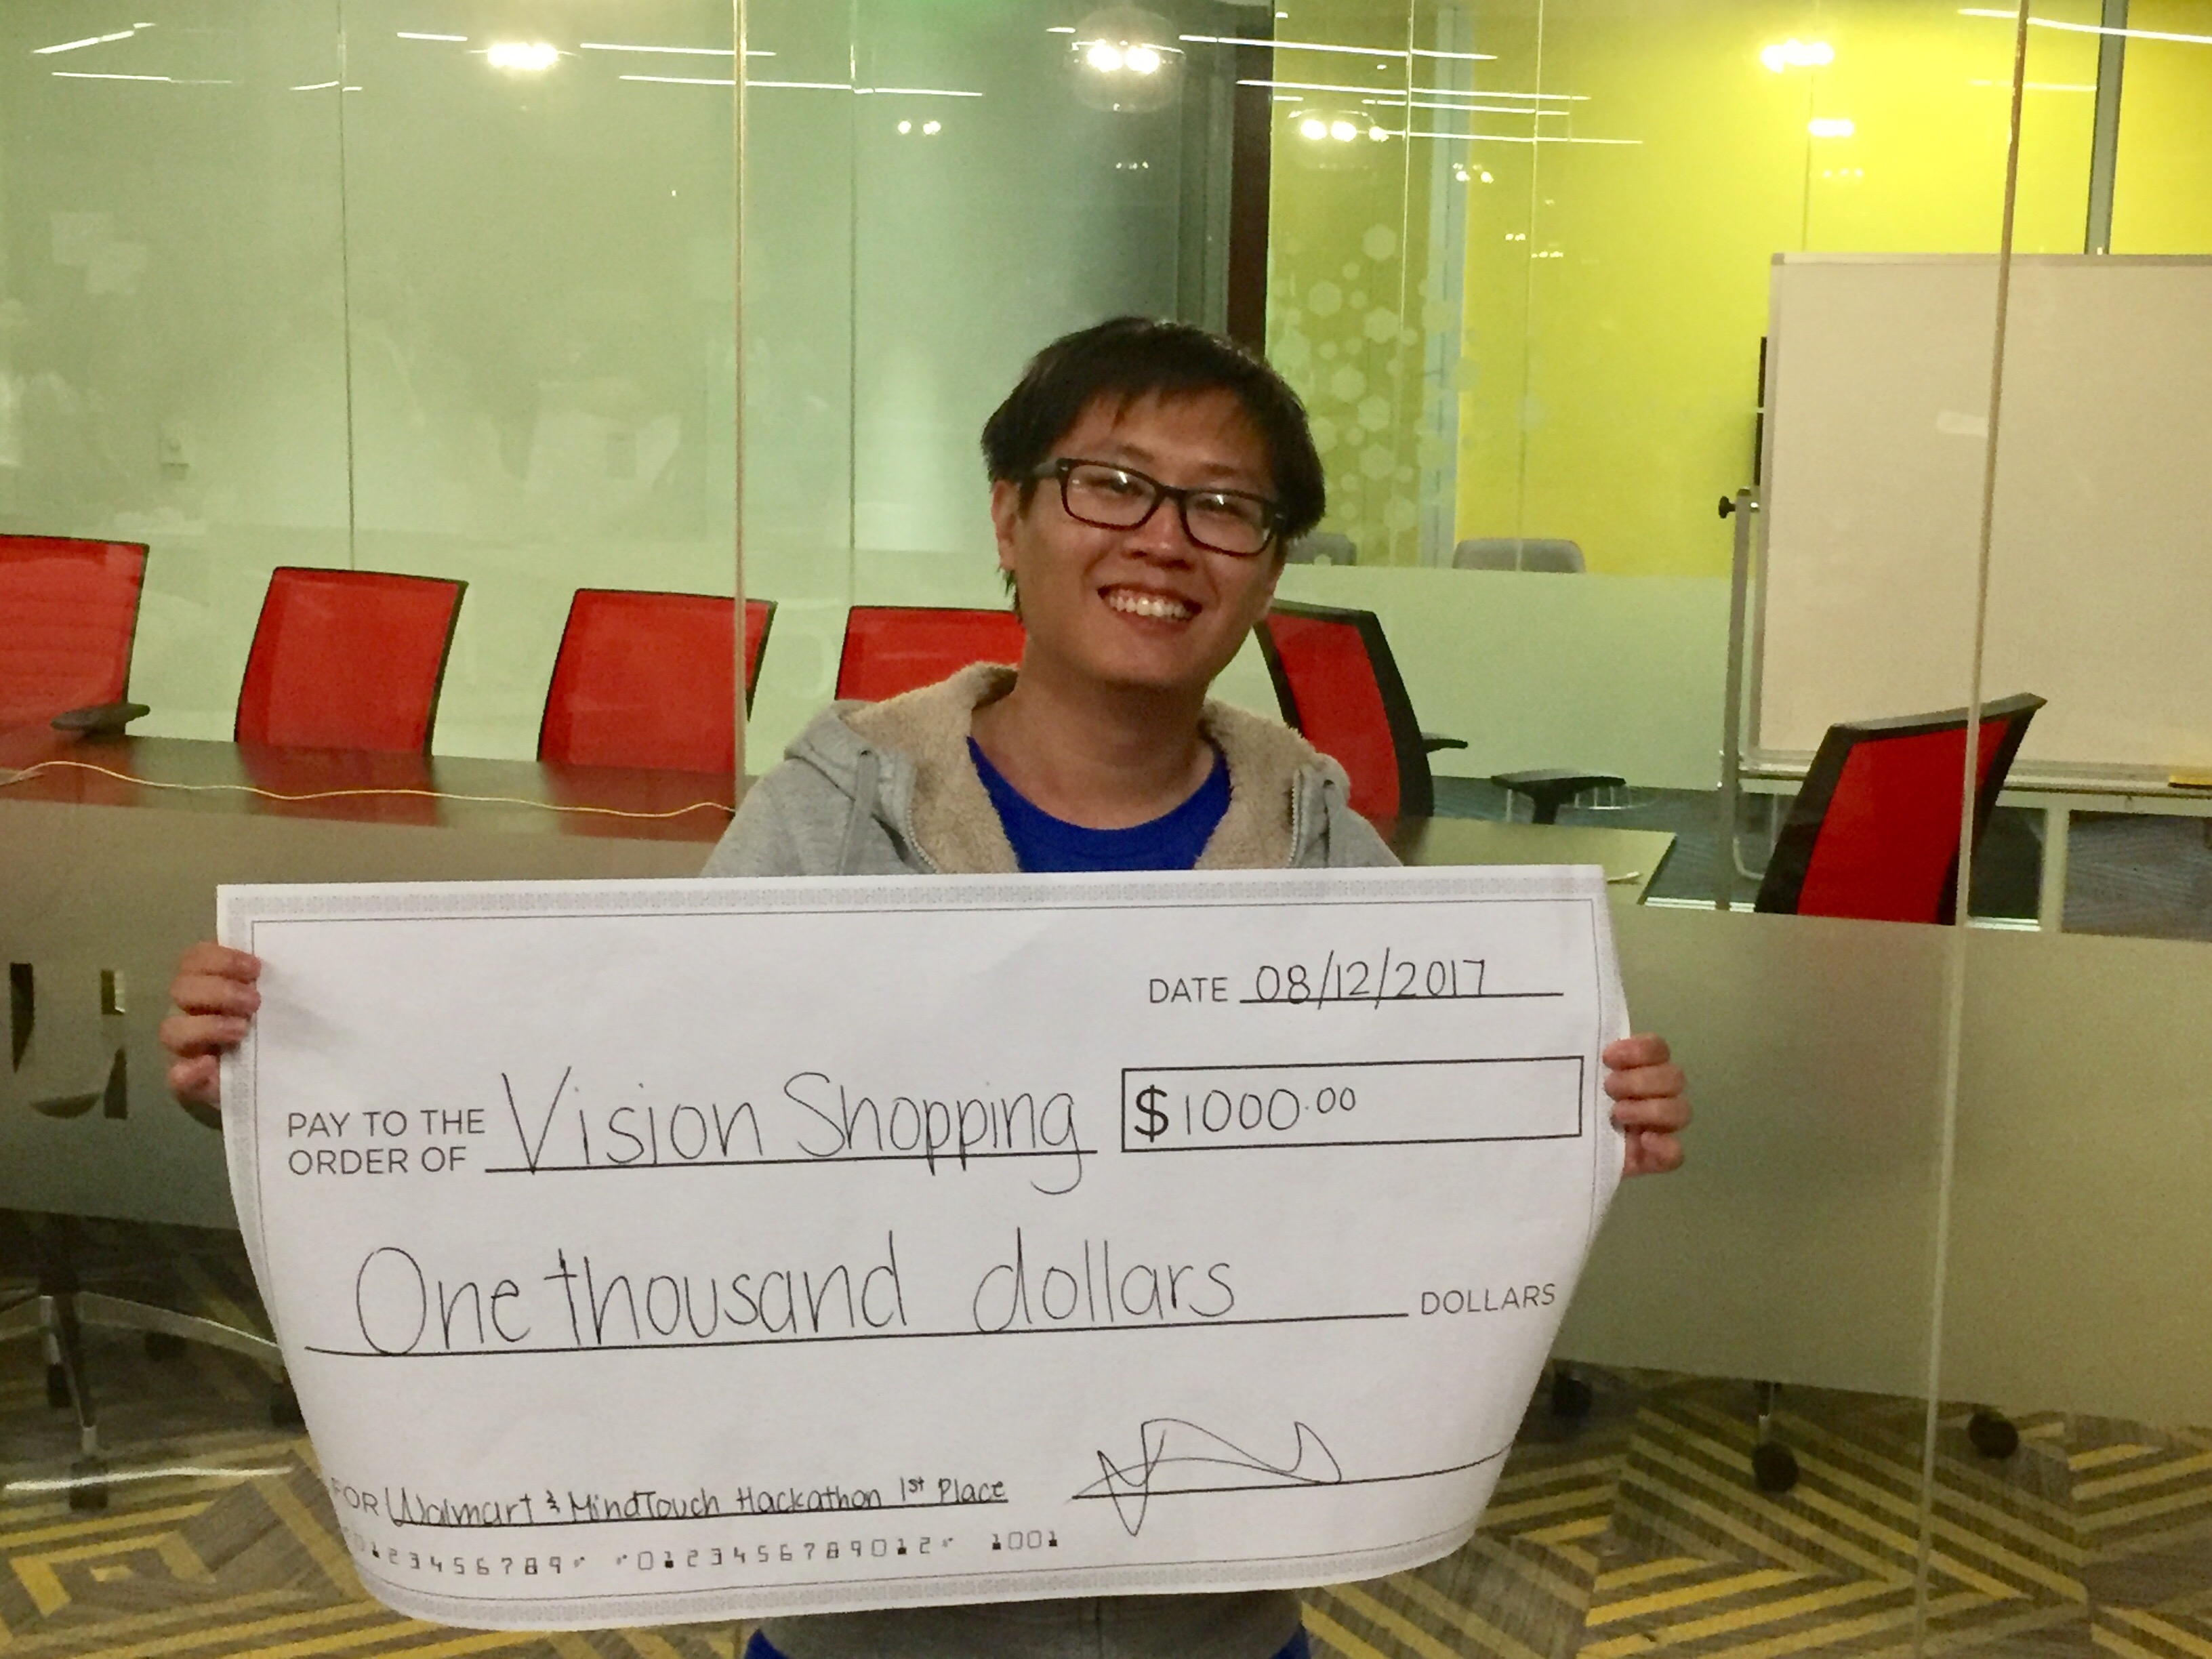 DATE 08/12/2017
PAY TO THE
ORDER OF Vision Shopping $1000.00
One thousand dollars DOLLARS
FOR Walmart & MindTouch Hackathon 1st Place
0123456789 0123456789012 1001